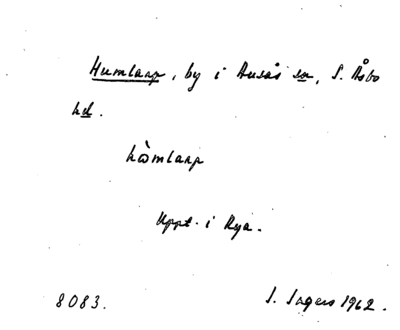 Humlarp, by i Ausås sn, S. Åsbo
hd.
hòmlarp
Uppt. i Rya.
8083.
S. Sagers 1962.